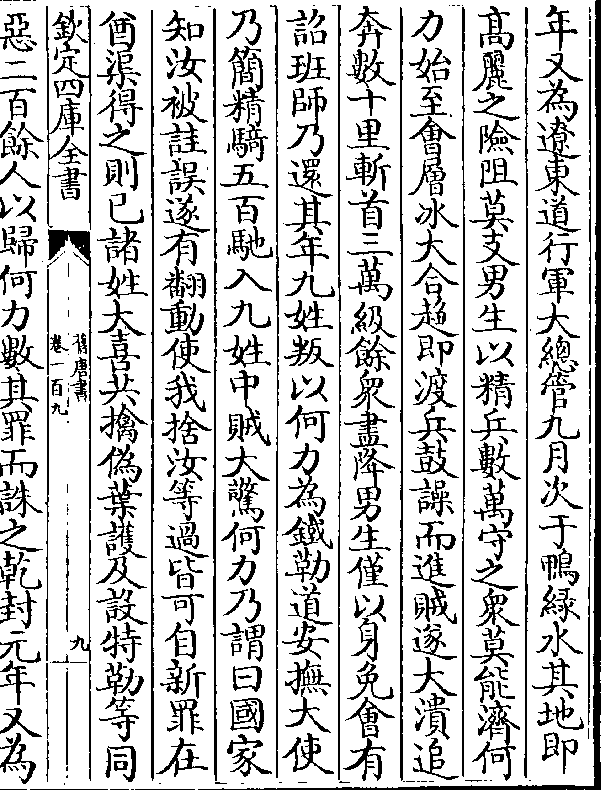 年又為遼東道行軍大總管九月次于鴨緑水其地即
髙麗之險阻莫支男生以精兵數萬守之衆莫能濟何
力始至會層冰大合趍即渡兵鼓譟而進賊遂大潰追
奔數十里斬首三萬級餘衆盡降男生僅以身免會有
詔班師乃還其年九姓叛以何力為鐵勒道安撫大使
乃簡精騎五百馳入九姓中賊大驚何力乃謂曰國家
知汝被詿誤遂有翻動使我捨汝等過皆可自新罪在
酋渠得之則已諸姓大喜共擒偽葉護及設特勒等同
欽定四庫全書
舊唐書
卷一百九
九
惡二百餘人以歸何力數其罪而誅之乾封元年又為